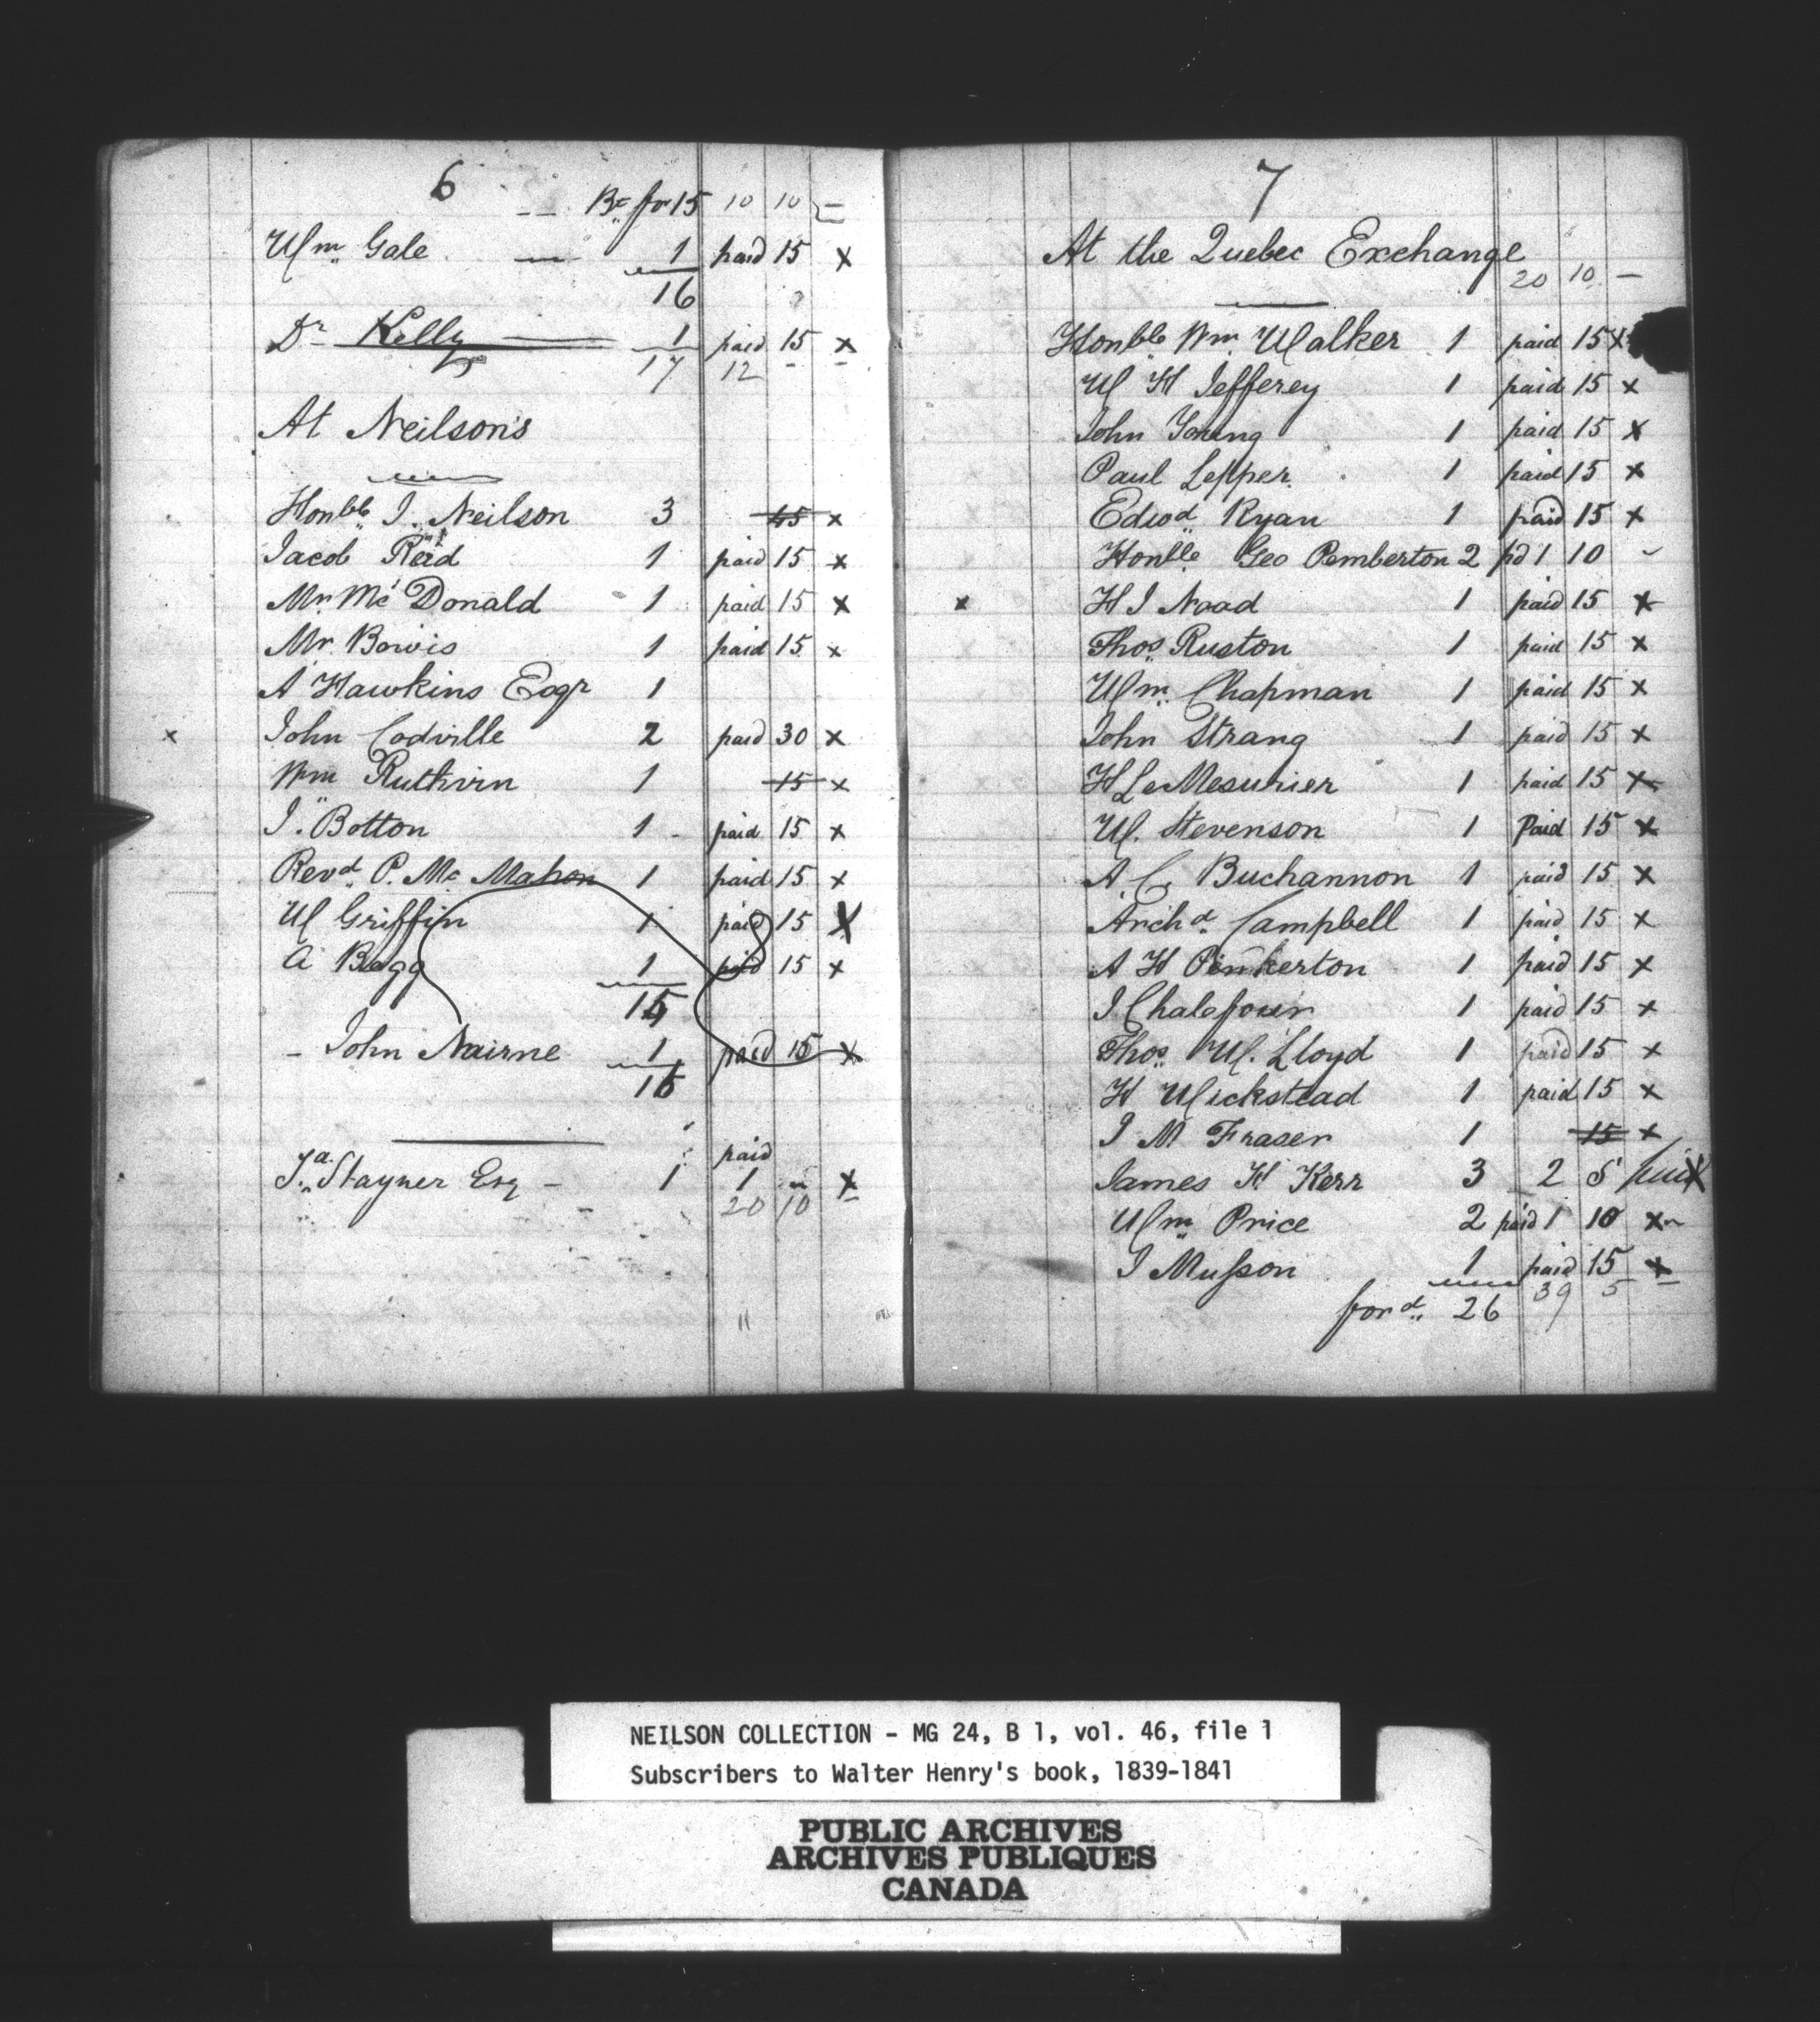 6
Bt for 15 10 10 –
Wm Gale 1 paid 15 x
16
Dr Kelly 1 paid 15 x
17 12 - -
At Neilson's
Honble J. Neilson 3 45 x
Jacob Reid 1 paid 15 x
Mr Mc Donald 1 paid 15 x
Mr Bowis 1 paid 15 x
A Hawkins Esqr 1
x John Codville 2 paid 30 x
Wm Ruthvin 1 15 x
J. Botton 1 - paid 15 x
Revd P. Mc Mahon 1 paid 15 x
W Griffin 1 paid 15 X
A Bagg 1 paid 15 x
15
- John Nairne 1 paid 15 x
16
paid
Ta. Stayner Esq - 1 1 – x
20 10 –
7
At the Quebec Exchange
20 10 –
Honble Wm Walker 1 paid 15 x
W H Jefferey 1 paid 15 x
John Young 1 paid 15 x
Paul Lepper 1 paid 15 x
Edwd Ryan 1 paid 15 x
Honble Geo Pemberton 2 pd 1 10 –
x H J Noad 1 paid 15 x
Thos Ruston 1 paid 15 x
Wm Chapman 1 paid 15 x
John Strang 1 paid 15 x
H Le Mesurier 1 paid 15 x
W. Stevenson 1 Paid 15 x
A. C. Buchannon 1 paid 15 x
Archd Campbell 1 paid 15 x
A H Pinkerton 1 paid 15 x
J Chalefour 1 paid 15 x
Thos W. Lloyd 1 paid 15 x
H Wickstead 1 paid 15 x
J M Fraser 1 15 x
James H Kerr 3 2 5 paid x
Wm Price 2 paid 1 10 x
J Musson 1 paid 15 x
ford 26 39 5 –
NEILSON COLLECTION - MG 24, B 1, vol. 46, file 1
Subscribers to Walter Henry's book, 1839-1841
PUBLIC ARCHIVES
ARCHIVES PUBLIQUES
CANADA